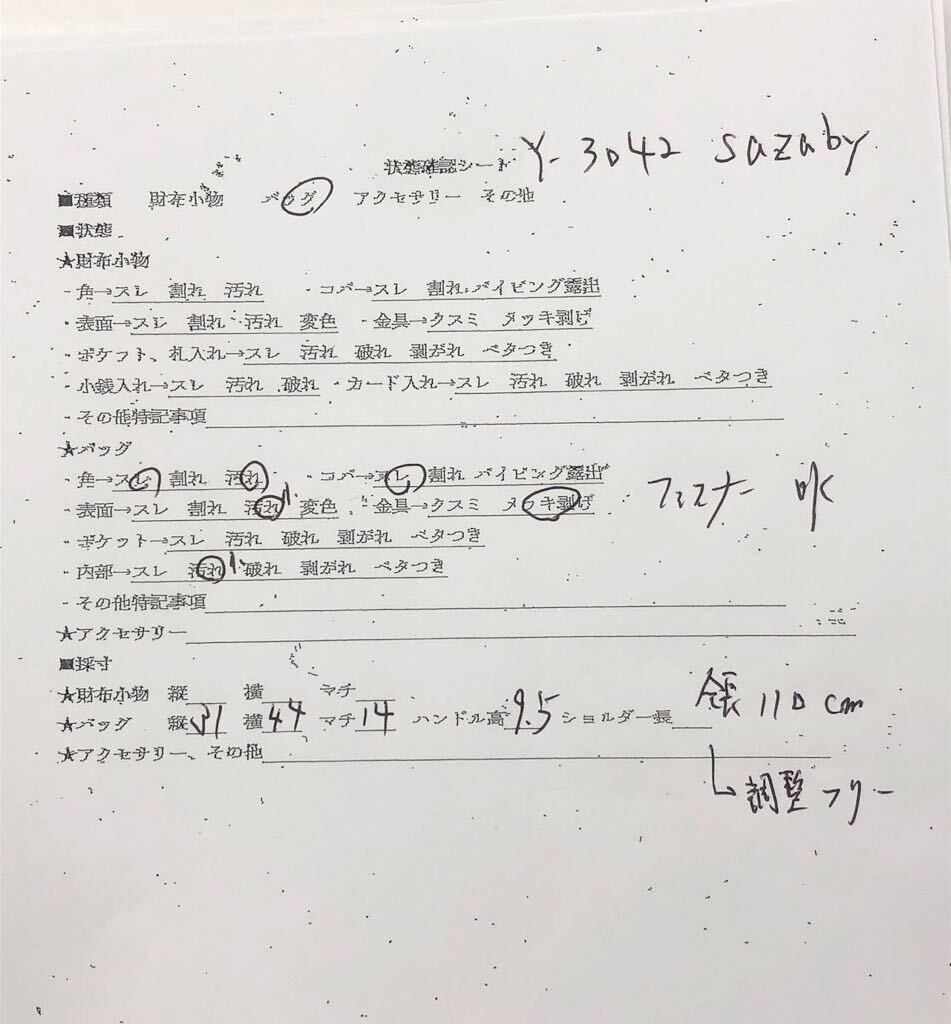 Y-3042 sazaby
状態確認シート
■種類 財布小物 バッグ アクセサリー その他
■状態
★財布小物
・角→スレ 割れ 汚れ ・コバ→スレ 割れ パイピング露出
・表面→スレ 割れ 汚れ 変色 ・金具→クスミ メッキ剥げ
・ポケット、札入れ→スレ 汚れ 破れ 剥がれ ベタつき
・小銭入れ→スレ 汚れ 破れ ・カード入れ→スレ 汚れ 破れ 剥がれ ベタつき
・その他特記事項
★バッグ
・角→スレ 割れ 汚れ ・コバ→スレ 割れ パイピング露出
・表面→スレ 割れ 汚れ 小 変色 ・金具→クスミ メッキ剥げ
ファスナー
・ポケット→スレ 汚れ 破れ 剥がれ ベタつき
・内部→スレ 汚れ 小 破れ 剥がれ ベタつき
・その他特記事項
★アクセサリー
■採寸
★財布小物 縦 横 マチ
★バッグ 縦31 横44 マチ14 ハンドル高9.5 ショルダー長 全長110cm
★アクセサリー、その他
調整フリー